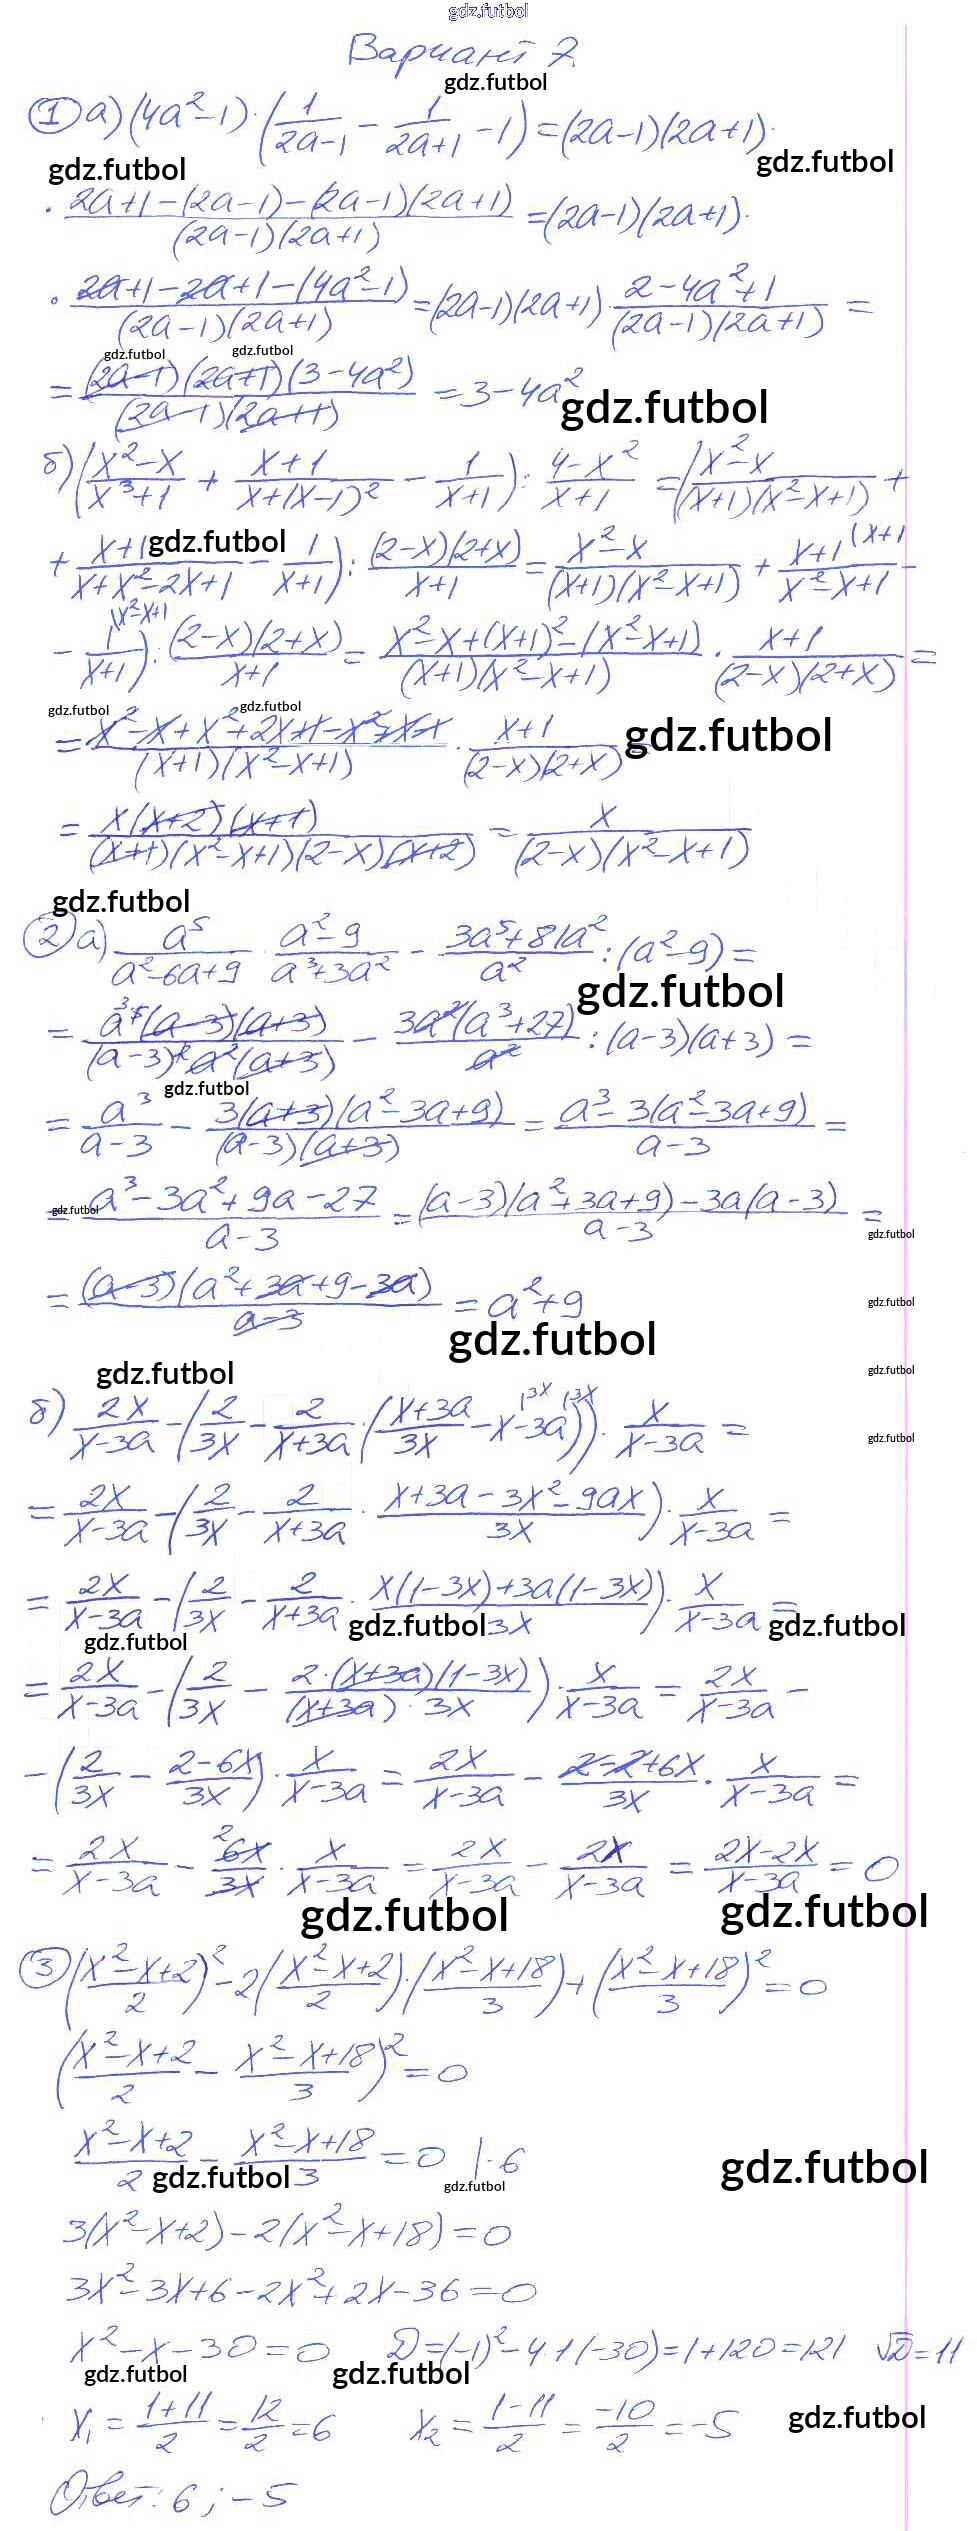 gdz.futbol
Вариант 7.
gdz.futbol
① а) (4a²-1)·(1/(2a-1) - 1/(2a+1) - 1) = (2a-1)(2a+1)·
gdz.futbol gdz.futbol
· (2a+1-(2a-1)-(2a-1)(2a+1))/((2a-1)(2a+1)) = (2a-1)(2a+1)·
· (2a+1-2a+1-(4a²-1))/((2a-1)(2a+1)) = (2a-1)(2a+1)·(2-4a²+1)/((2a-1)(2a+1)) =
gdz.futbol gdz.futbol
= ((2a-1)(2a+1)(3-4a²))/((2a-1)(2a+1)) = 3-4a²
gdz.futbol
б) ((x²-x)/(x³+1) + (x+1)/(x+(x-1)²) - 1/(x+1)) : (4-x²)/(x+1) = ((x²-x)/((x+1)(x²-x+1)) +
gdz.futbol
+ (x+1)/(x+x²-2x+1) - 1/(x+1)) : ((2-x)(2+x))/(x+1) = (x²-x)/((x+1)(x²-x+1)) + (x+1)/(x²-x+1) (x+1 -
- 1/(x+1) (x²-x+1) : ((2-x)(2+x))/(x+1) = (x²-x+(x+1)²-(x²-x+1))/((x+1)(x²-x+1)) · (x+1)/((2-x)(2+x)) =
gdz.futbol gdz.futbol
= (x²-x+x²+2x+1-x²+x-1)/((x+1)(x²-x+1)) · (x+1)/((2-x)(2+x)) =
gdz.futbol
= (x(x+2)(x+1))/((x+1)(x²-x+1)(2-x)(x+2)) = x/((2-x)(x²-x+1))
gdz.futbol
② а) a⁵/(a²-6a+9) · (a²-9)/(a³+3a²) - (3a⁵+81a²)/a² : (a²-9) =
gdz.futbol
= (a⁵ ³(a-3)(a+3))/((a-3)²a²(a+3)) - (3a²(a³+27))/a² : (a-3)(a+3) =
gdz.futbol
= a³/(a-3) - (3(a+3)(a²-3a+9))/((a-3)(a+3)) = (a³-3(a²-3a+9))/(a-3) =
gdz.futbol
= (a³-3a²+9a-27)/(a-3) = ((a-3)(a²+3a+9)-3a(a-3))/(a-3) =
gdz.futbol
= ((a-3)(a²+3a+9-3a))/(a-3) = a²+9
gdz.futbol
gdz.futbol
gdz.futbol gdz.futbol
б) 2x/(x-3a) - (2/3x - 2/(x+3a) · ((x+3a)/3x - x (3x - 3a (3x)) · x/(x-3a) =
gdz.futbol
= 2x/(x-3a) - (2/3x - 2/(x+3a) · (x+3a-3x²-9ax)/3x) · x/(x-3a) =
= 2x/(x-3a) - (2/3x - 2/(x+3a) · (x(1-3x)+3a(1-3x))/3x) · x/(x-3a) =
gdz.futbol gdz.futbol gdz.futbol
= 2x/(x-3a) - (2/3x - (2·(x+3a)(1-3x))/((x+3a)·3x)) · x/(x-3a) = 2x/(x-3a) -
- (2/3x - (2-6x)/3x) · x/(x-3a) = 2x/(x-3a) - (2-2+6x)/3x · x/(x-3a) =
= 2x/(x-3a) - 6x ²/3x · x/(x-3a) = 2x/(x-3a) - 2x/(x-3a) = (2x-2x)/(x-3a) = 0
gdz.futbol gdz.futbol
③ ((x²-x+2)/2)² - 2((x²-x+2)/2)·((x²-x+18)/3) + ((x²-x+18)/3)² = 0
((x²-x+2)/2 - (x²-x+18)/3)² = 0
(x²-x+2)/2 - (x²-x+18)/3 = 0 |·6
gdz.futbol gdz.futbol gdz.futbol
3(x²-x+2)-2(x²-x+18)=0
3x²-3x+6-2x²+2x-36=0
x²-x-30=0 D=(-1)²-4·1(-30)=1+120=121 √D=11
gdz.futbol gdz.futbol
x₁ = (1+11)/2 = 12/2 = 6 x₂ = (1-11)/2 = -10/2 = -5
gdz.futbol
Ответ: 6; -5